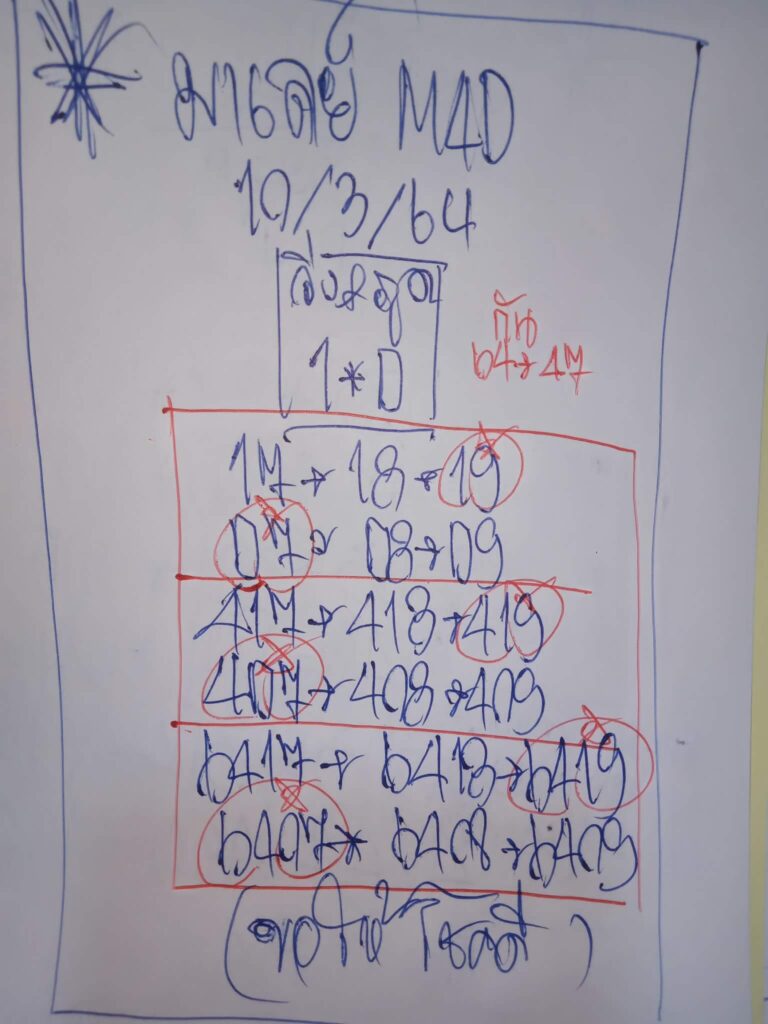 มาเลย์ M4D
10/3/64
วิ่งรูด
1*0
กัน
64→47
17→18→19
07→08→09
417→418→419
407→408→409
6417→6418→6419
6407*6408→6409
(ขอให้โชคดี)